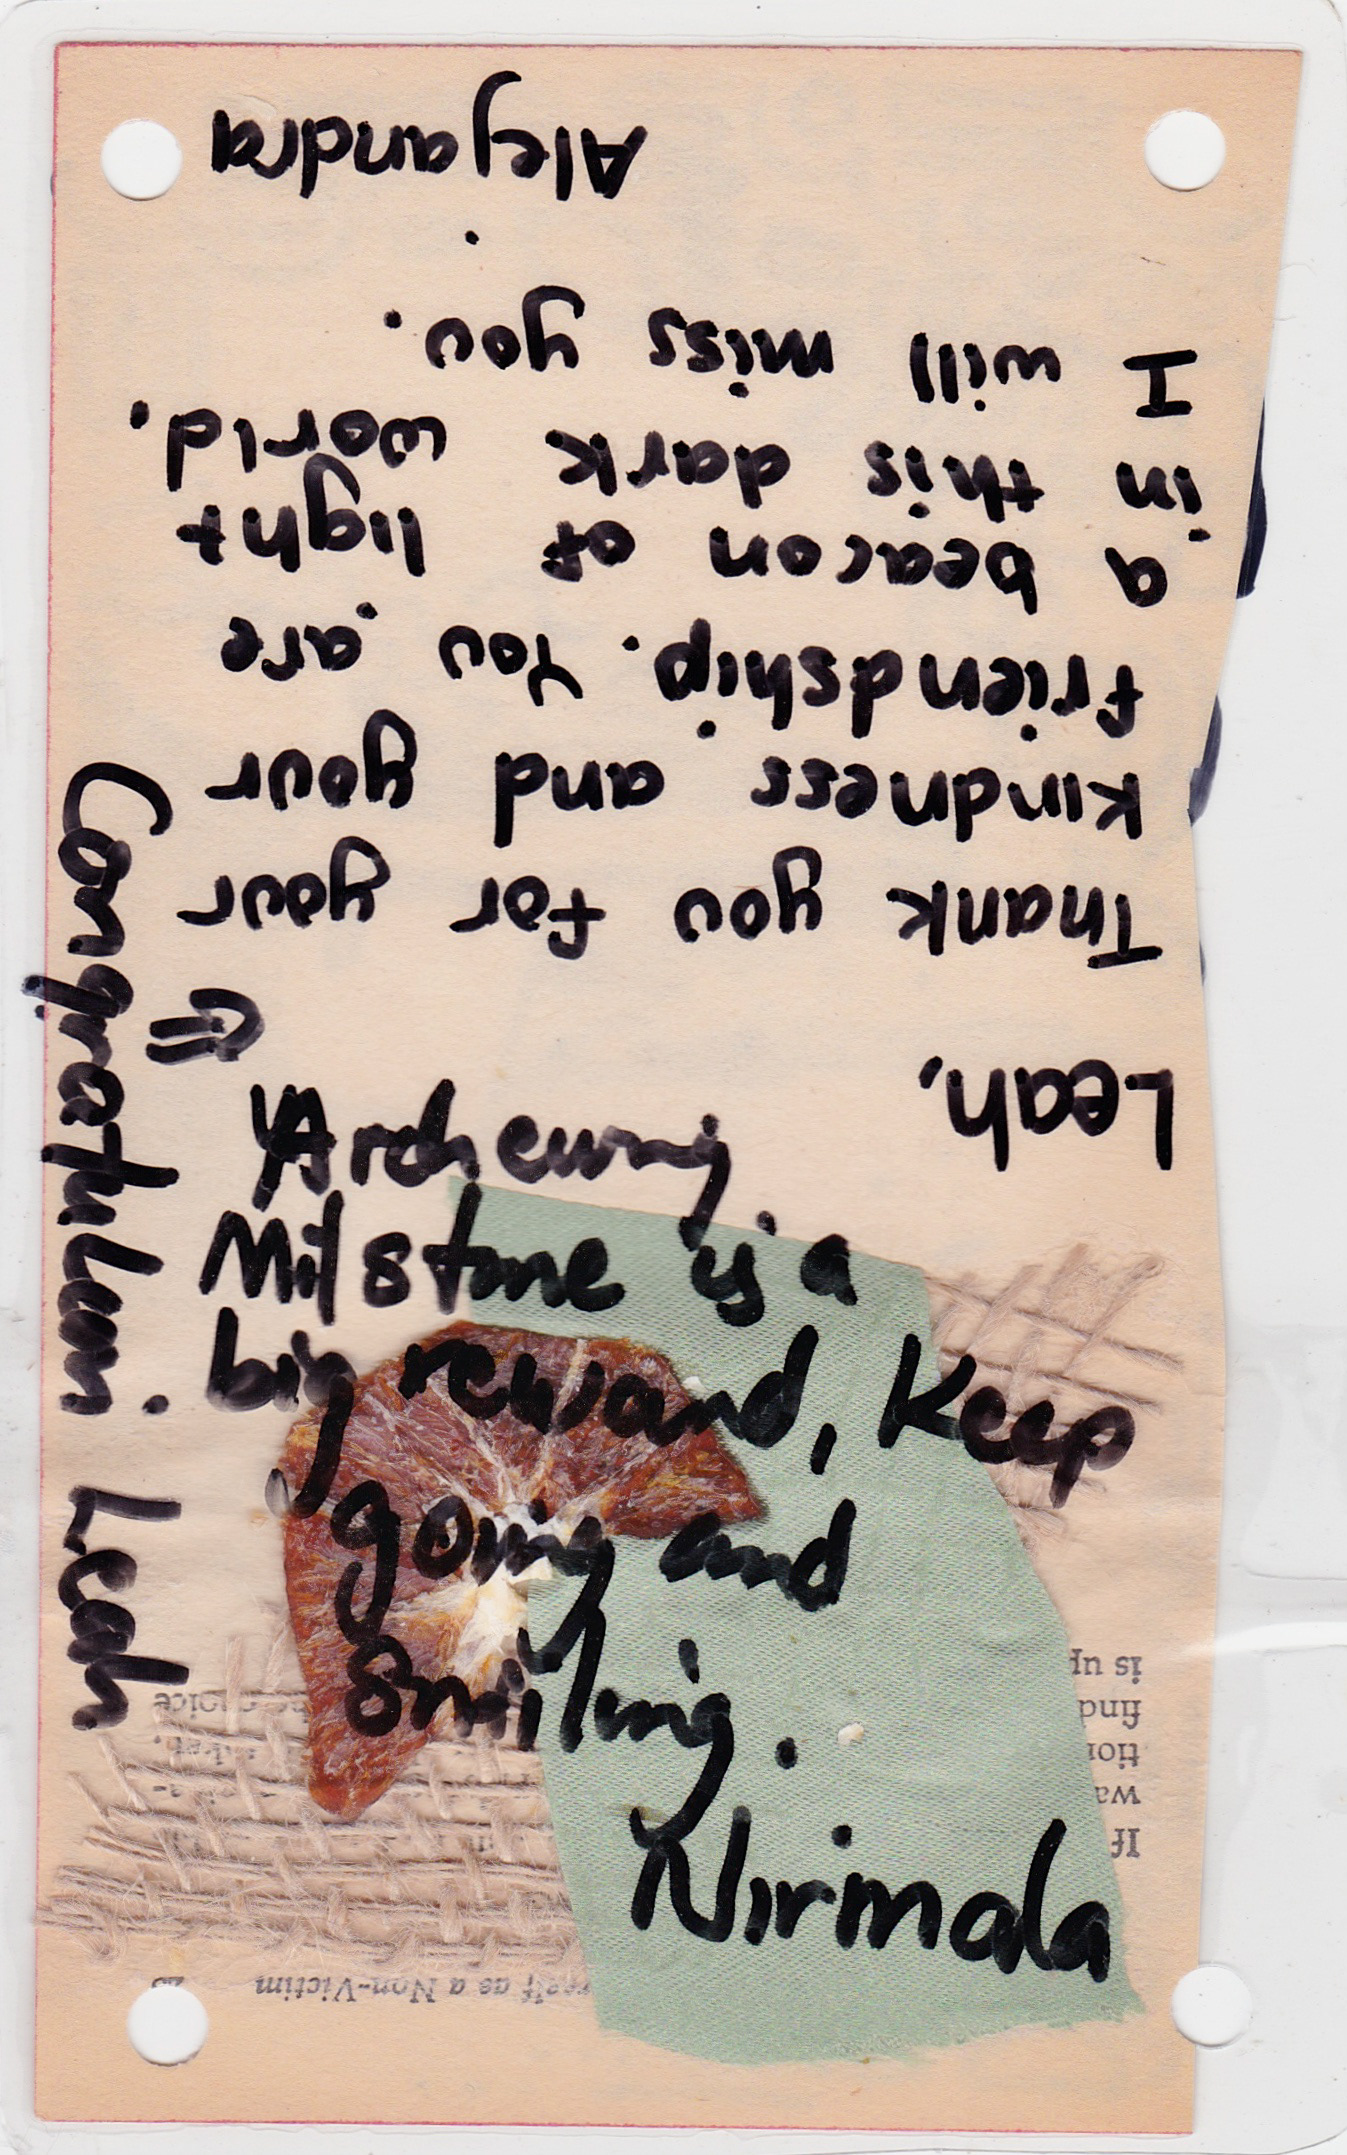 Leah,
Thank you for your
kindness and your
friendship. You are
a beacon of light
in this dark world.
I will miss you.
Alejandra
Congratulani Leah
Archewing
Milstone is a
big reward, Keep
going and
Smiling.
Nirmala
as a Non-Victim
If
wa
tion
find
is up